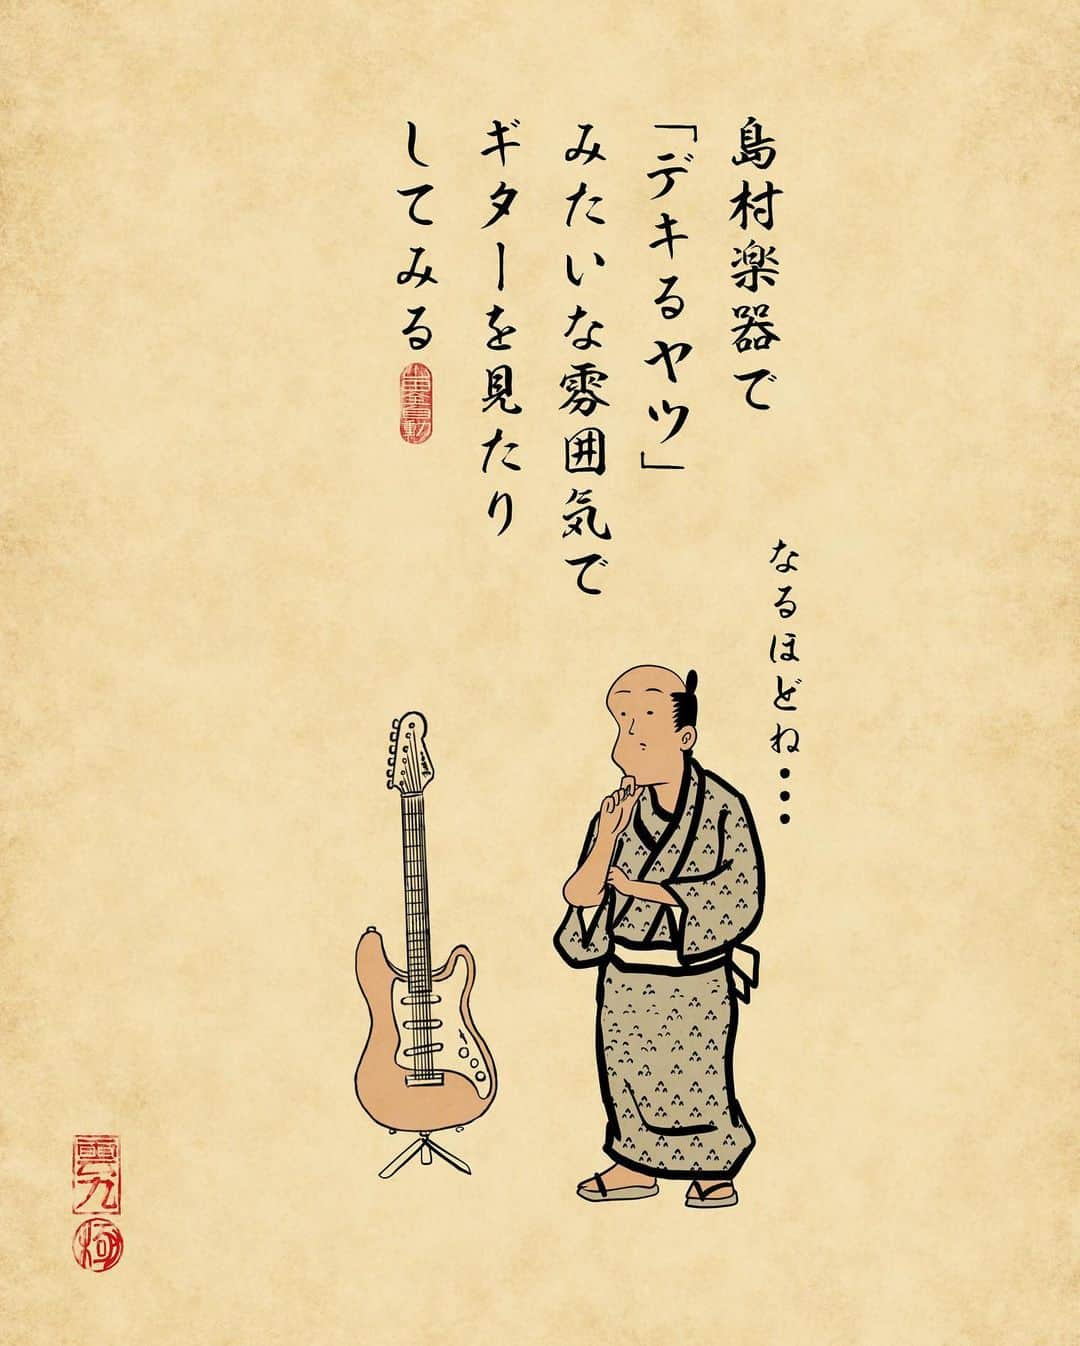 島村楽器で
「デキるヤツ」
みたいな雰囲気で
ギターを見たり
してみる
なるほどね・・・